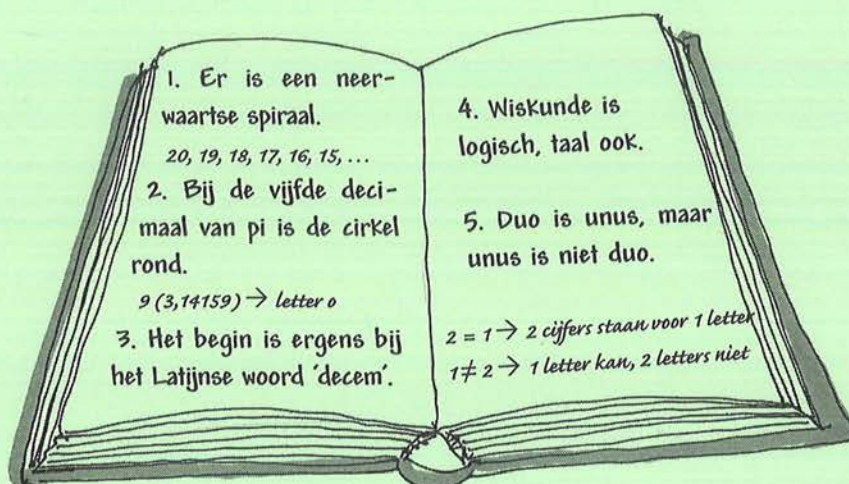 1. Er is een neer-
waartse spiraal.
20, 19, 18, 17, 16, 15, ...
2. Bij de vijfde deci-
maal van pi is de cirkel
rond.
9 (3,14159) → letter o
3. Het begin is ergens bij
het Latijnse woord 'decem'.
4. Wiskunde is
logisch, taal ook.
5. Duo is unus, maar
unus is niet duo.
2 = 1 → 2 cijfers staan voor 1 letter
1 ≠ 2 → 1 letter kan, 2 letters niet